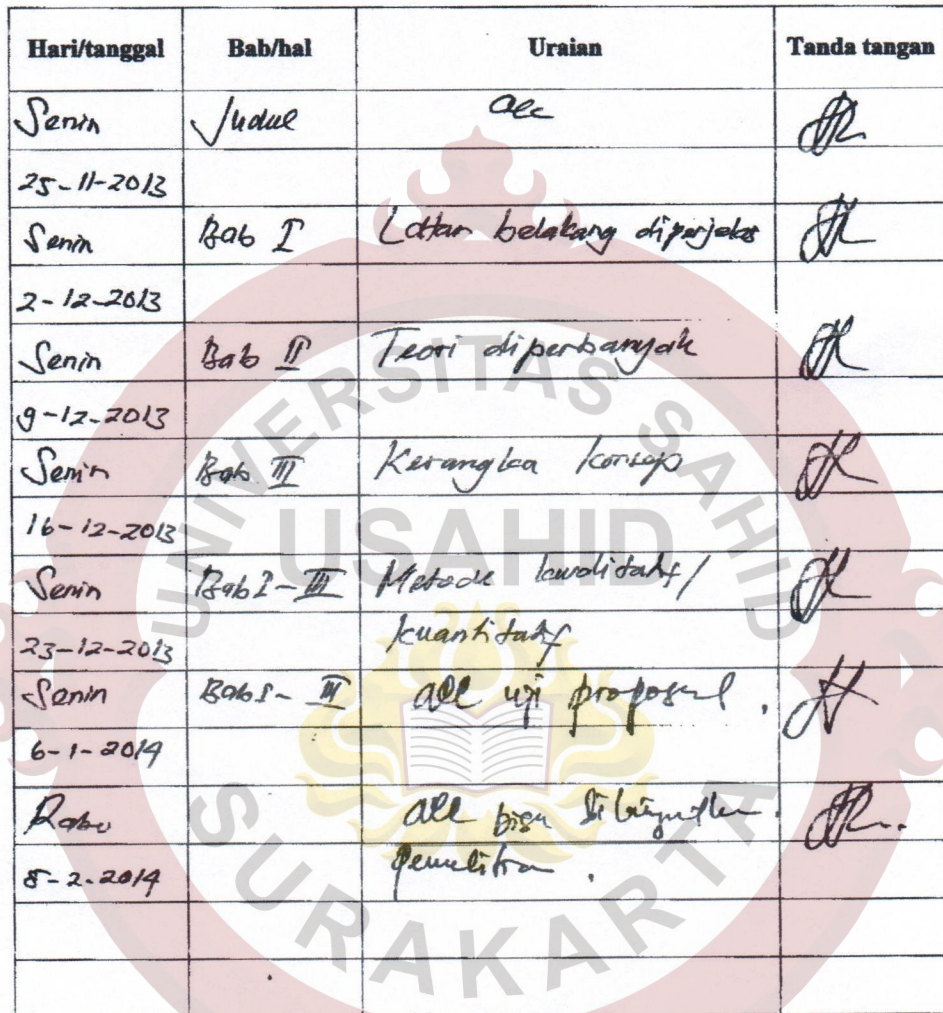 Hari/tanggal Bab/hal Uraian Tanda tangan
Senin Judul acc
25-11-2013
Senin Bab I Lattar belakang diperjelas
2-12-2013
Senin Bab II Teori diperbanyak
9-12-2013
Senin Bab III Kerangka konsep
16-12-2013
Senin Bab I-III Metode kwalitatif/
23-12-2013 kuantitatif
Senin Bab I-III acc uji proposal.
6-1-2014
Rabu acc bisa
8-2-2014 penelitian.
UNIVERSITAS SAHID
USAHID
SURAKARTA